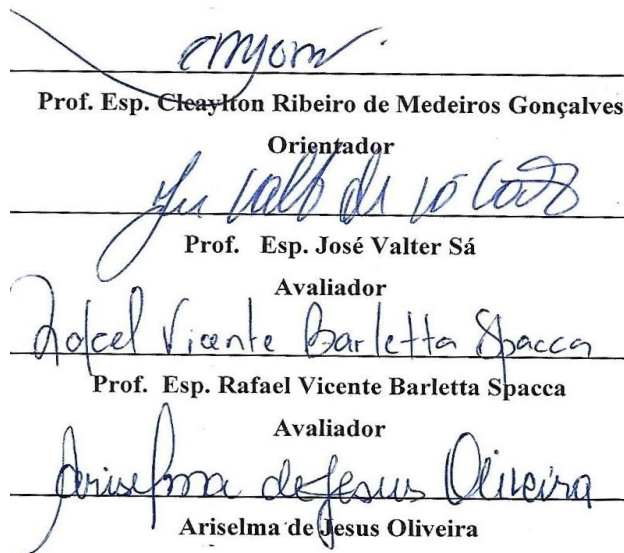 Prof. Esp. Cleaylton Ribeiro de Medeiros Gonçalves
Orientador
Prof. Esp. José Valter Sá
Avaliador
Rafael Vicente Barletta Spacca
Prof. Esp. Rafael Vicente Barletta Spacca
Avaliador
Ariselma de Jesus Oliveira
Ariselma de Jesus Oliveira